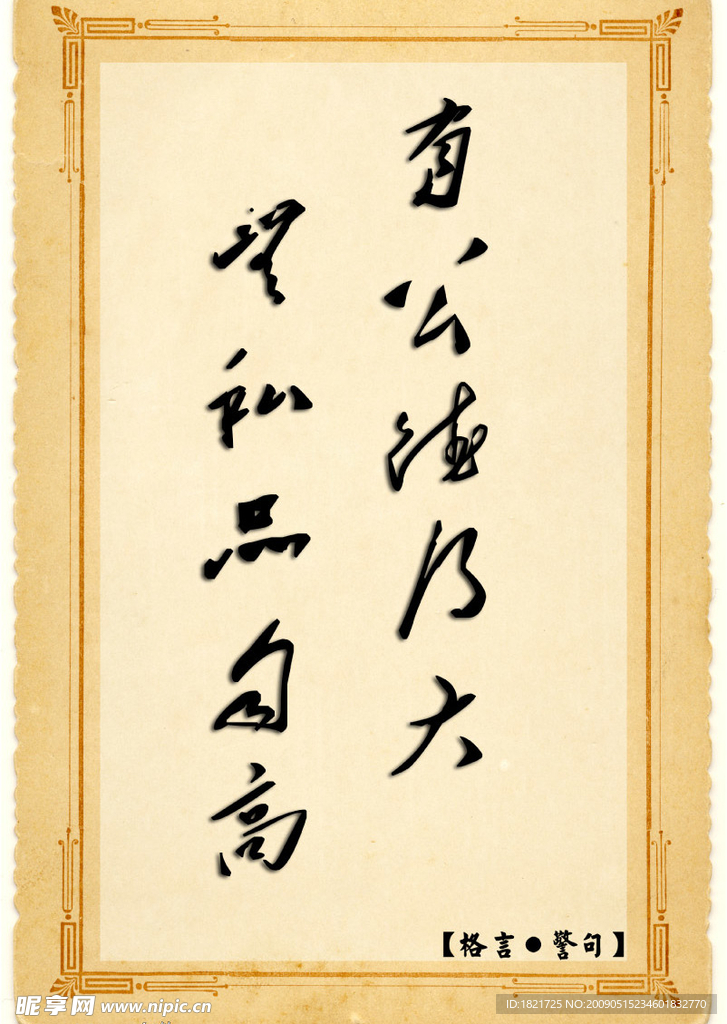 有公德乃大
無私品自高
【格言●警句】
昵享网 www.nipic.cn
ID:1821725 NO:20090515234601832770